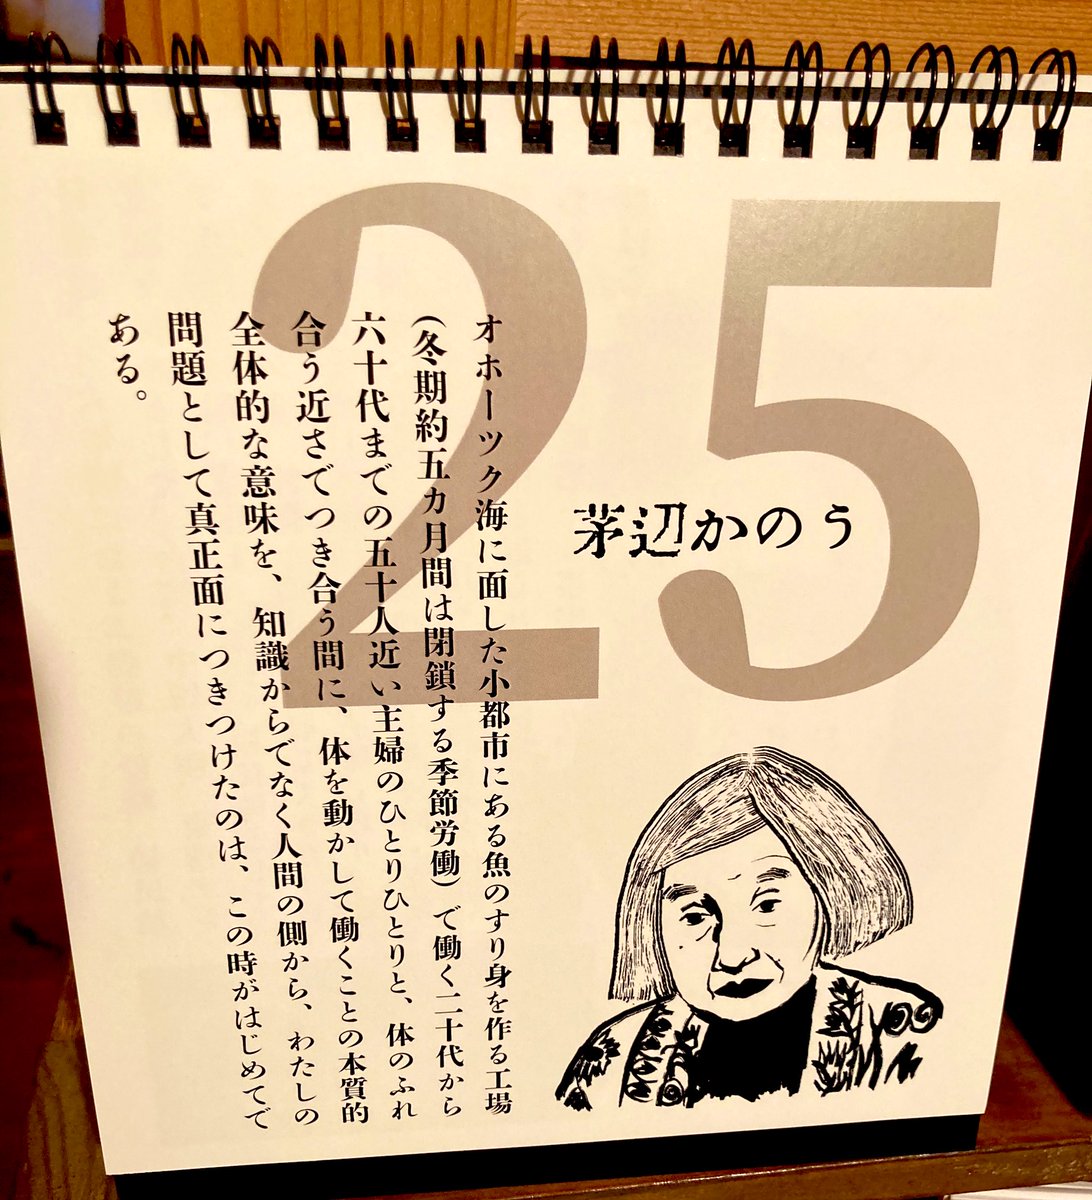 25
茅辺かのう
オホーツク海に面した小都市にある魚のすり身を作る工場
(冬期約五カ月間は閉鎖する季節労働)で働く二十代から
六十代までの五十人近い主婦のひとりひとりと、体のふれ
合う近さでつき合う間に、体を動かして働くことの本質的
全体的な意味を、知識からでなく人間の側から、わたしの
問題として真正面につきつけたのは、この時がはじめてで
ある。